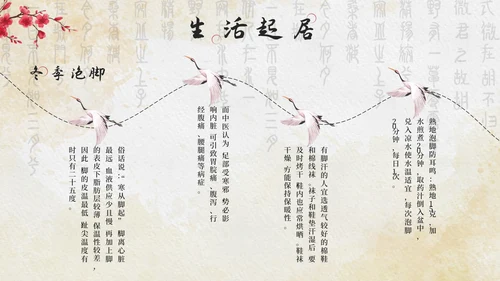 生活起居
冬季泡脚
俗话说:“寒从脚起” 脚离心脏
最远 血液供应少且慢 再加上脚
的表皮下脂肪层较薄 保温性较差,
因此 脚的皮温最低 趾尖温度有
时只有二十五度。
而中医认为 足部受寒邪 势必影
响内脏 可引致胃脘痛、腹泻、行
经腹痛、腰腿痛等病症。
有脚汗的人宜选透气较好的棉鞋
和棉线袜。袜子和鞋垫汗湿后要
及时烤干 鞋内也应常烘晒。鞋袜
干燥 方能保持保暖性。
熟地泡脚防耳鸣:熟地15克,加
水煎煮20分钟,取药汁倒入盆中,
兑入凉水使水温适宜,每次泡脚
20分钟,每日1次。